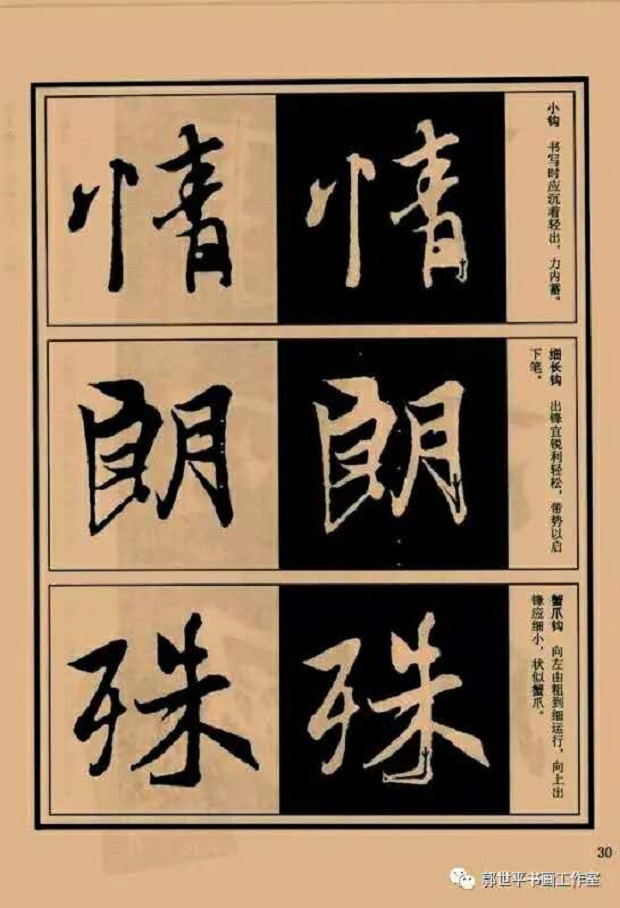 情 情
小钩 书写时应沉着轻出，力内蓄。
朗 朗
细长钩 出锋宜锐利轻松，带势以启
下笔。
殊 殊
蟹爪钩 向左由粗到细运行，向上出
锋应细小，状似蟹爪。
30
郭世平书画工作室